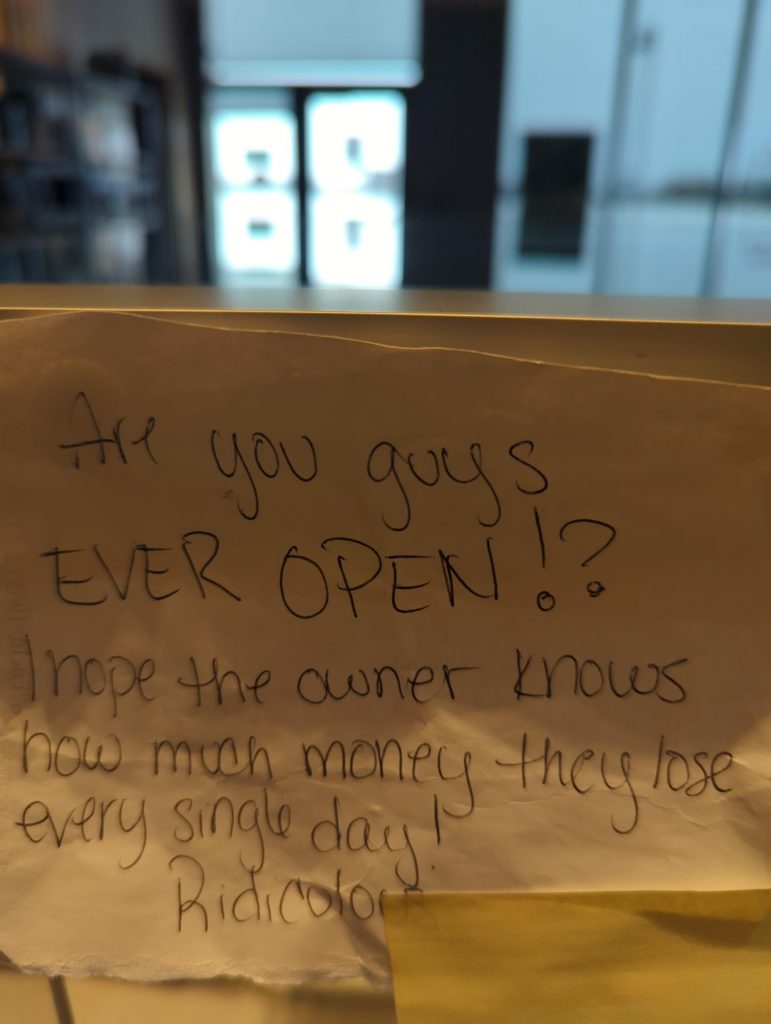 Are you guys
EVER OPEN!?
I hope the owner knows
how much money they lose
every single day!